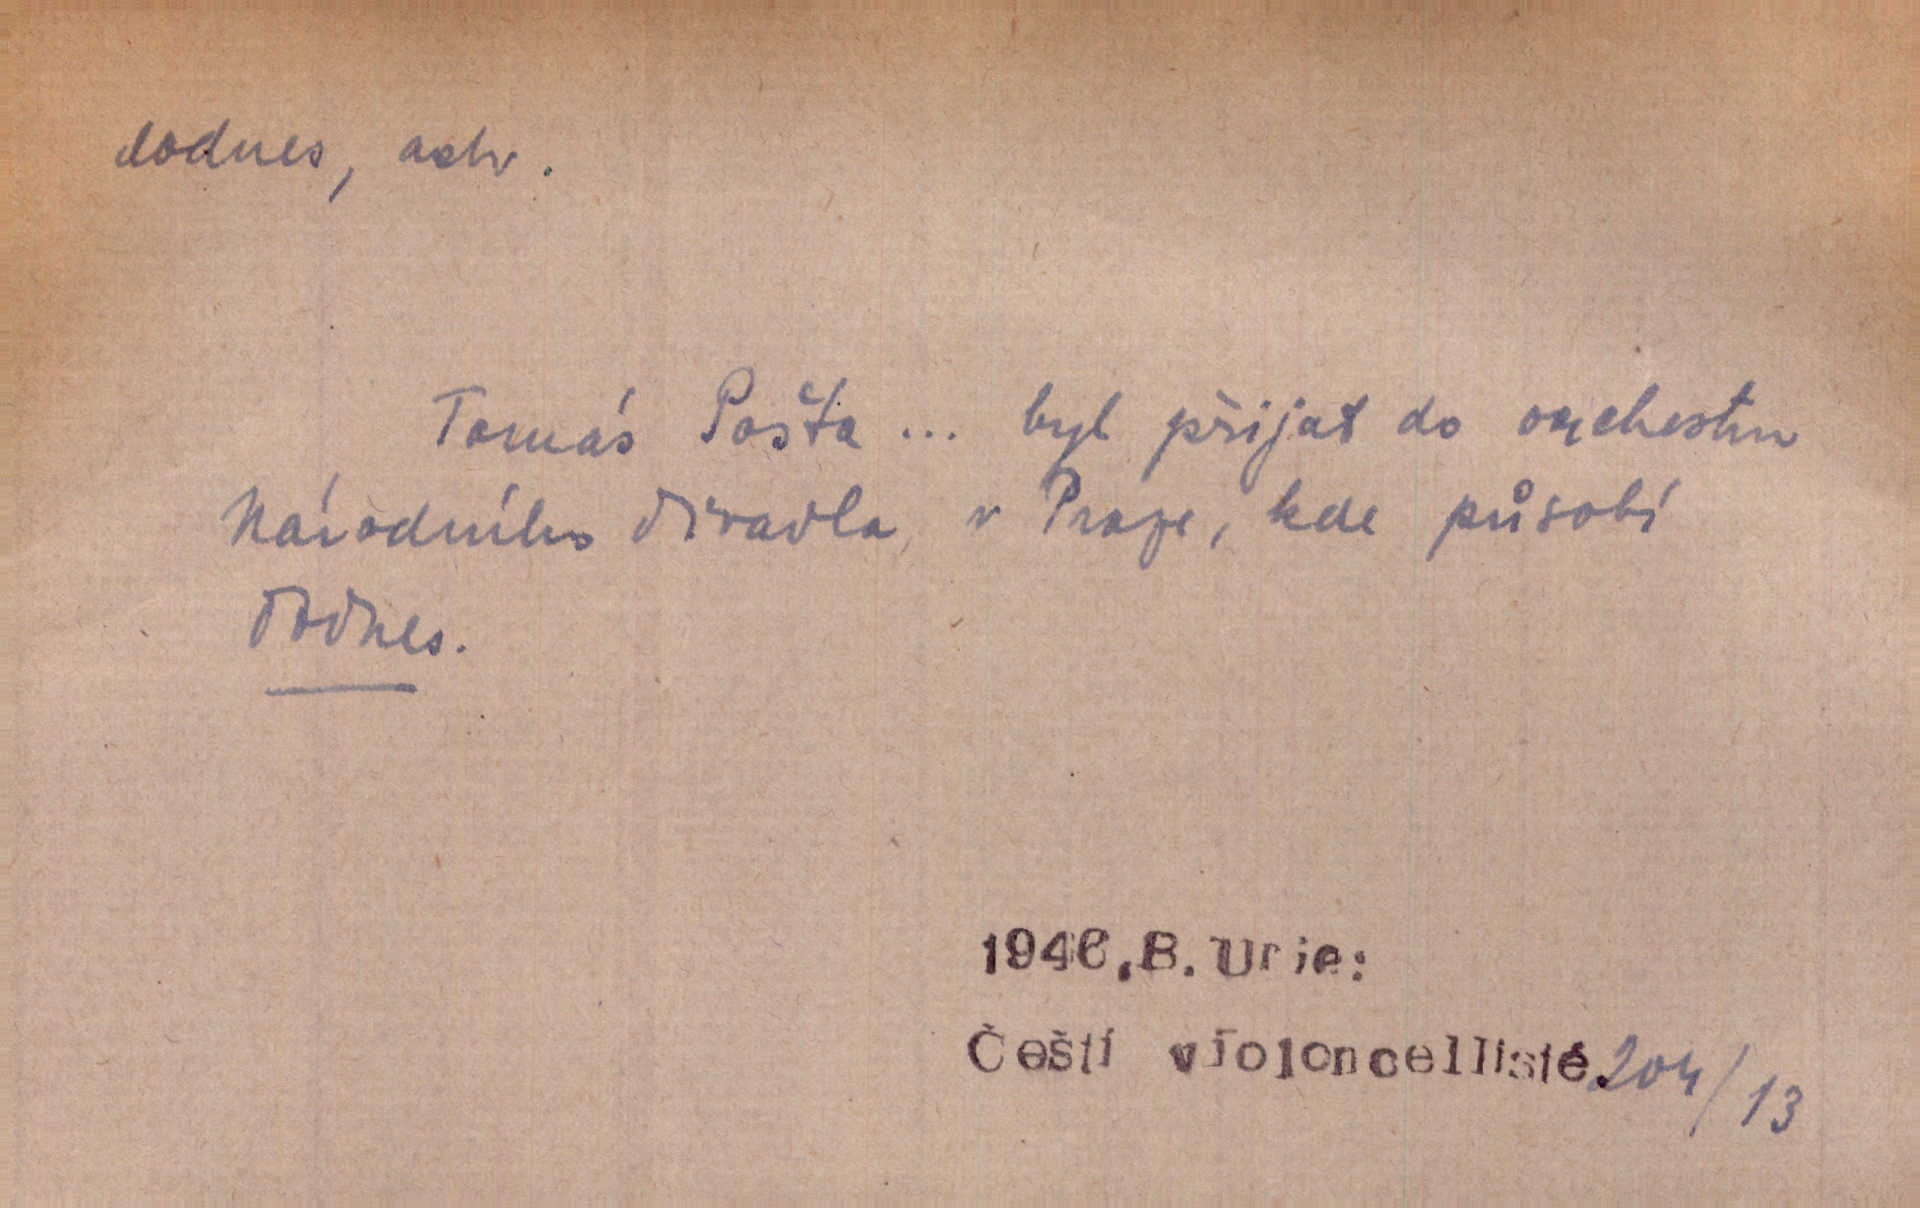 dodnes, adv.
Tomáš Pošta ... byl přijat do orchestru
Národního divadla v Praze, kde působí
dodnes.
1946, B. Urie:
Čeští violoncellisté 204/13